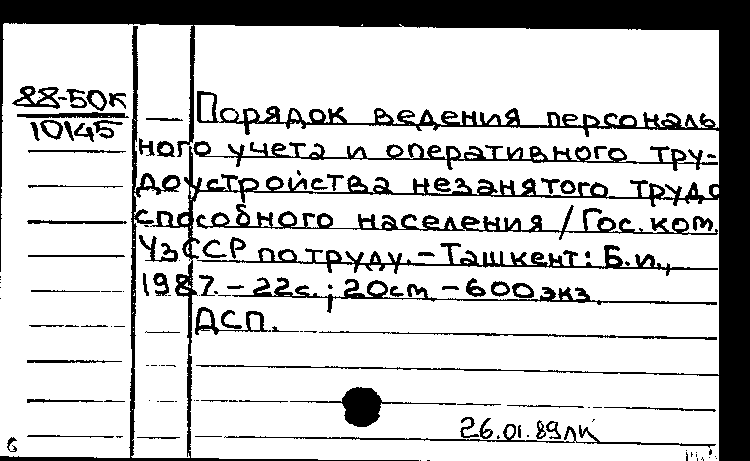 88-50К
10145
Порядок ведения персональ
ного учета и оперативного тру-
доустройства незанятого трудо
способного населения / Гос. ком.
УзССР по труду. – Ташкент: Б.и.,
1987. – 22с.; 20см – 600 экз.
ДСП.
26.01.89лк
6